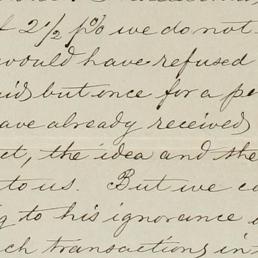 2 1/2 p% we do not
would have refused
but once for a
have already received
, the idea and the
to us. But we
to his ignorance
transactions in